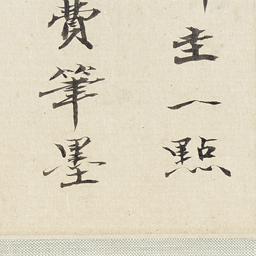 圭一點
費筆墨